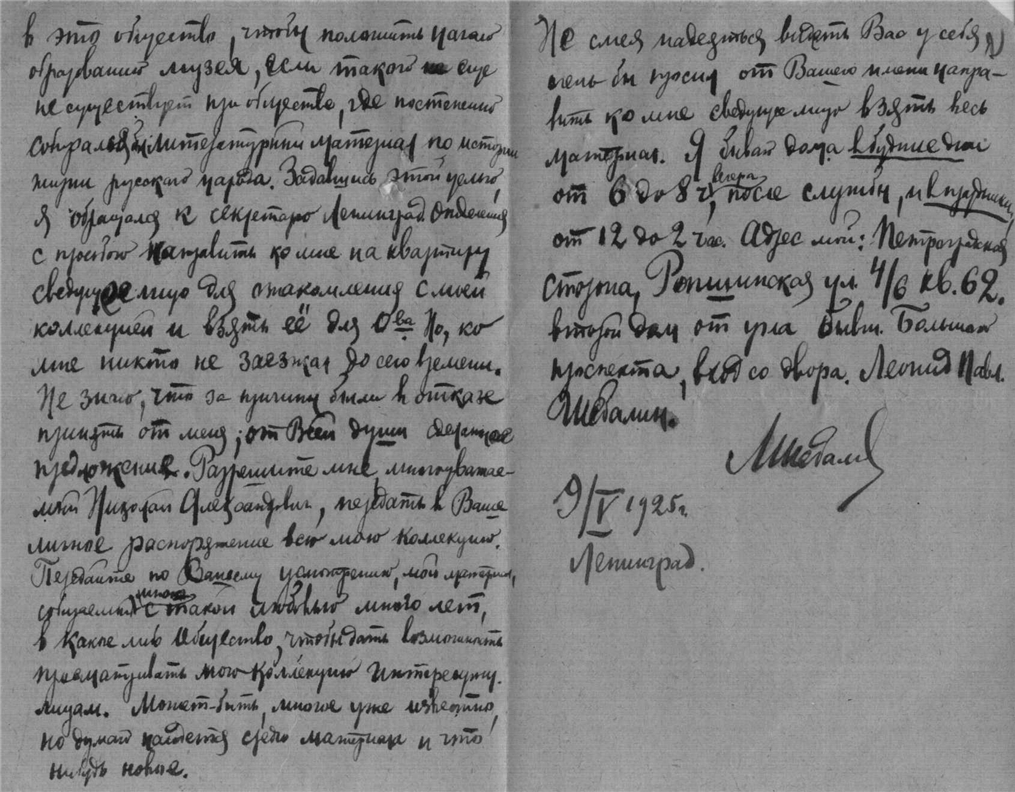 в это общество, чтобы положить начало
образованию музея, если такого не еще
не существует при обществе, где постепенно
литературный материал по истории
жизни русского народа. Задавшись этой целью,
я обращался к секретарю Ленинград. Отделения
с просьбою направить ко мне на квартиру
сведущее лицо для ознакомления с моей
коллекцией и взять её для О ва. Но, ко
мне никто не заезжал до сего времени.
Не знаю, что за причины были в отказе
принять от меня, от Всей души сделанное
предложение. Разрешите мне, многоуважае-
мый Николай Александрович, передать в Ваше
личное распоряжение всю мою коллекцию.
Передайте по Вашему усмотрению, мой материал,
собираемый мною с такой любовью много лет,
в какое либо Общество, чтобы дать возможность
просматривать мою коллекцию интересующ.
лицам. Может-быть, многое уже известно,
но думаю найдется среди материала и что
нибудь новое.
Не смея надеяться видеть Вас у себя,
бы просил от Вашего имени напра-
вить ко мне сведущее лицо взять весь
материал. Я бываю дома в будние дни
от 6 до 8 ч. вечера, после службы, и в праздники,
от 12 до 2 час. Адрес мой: Петроградская
сторона, Ропшинская ул. 4/6 кв. 62.
второй дом от угла бывш. Большого
проспекта, вход со двора. Леонид Павл.
Шебалин.
ЛШебалин
9/V 1925 г.
Ленинград.